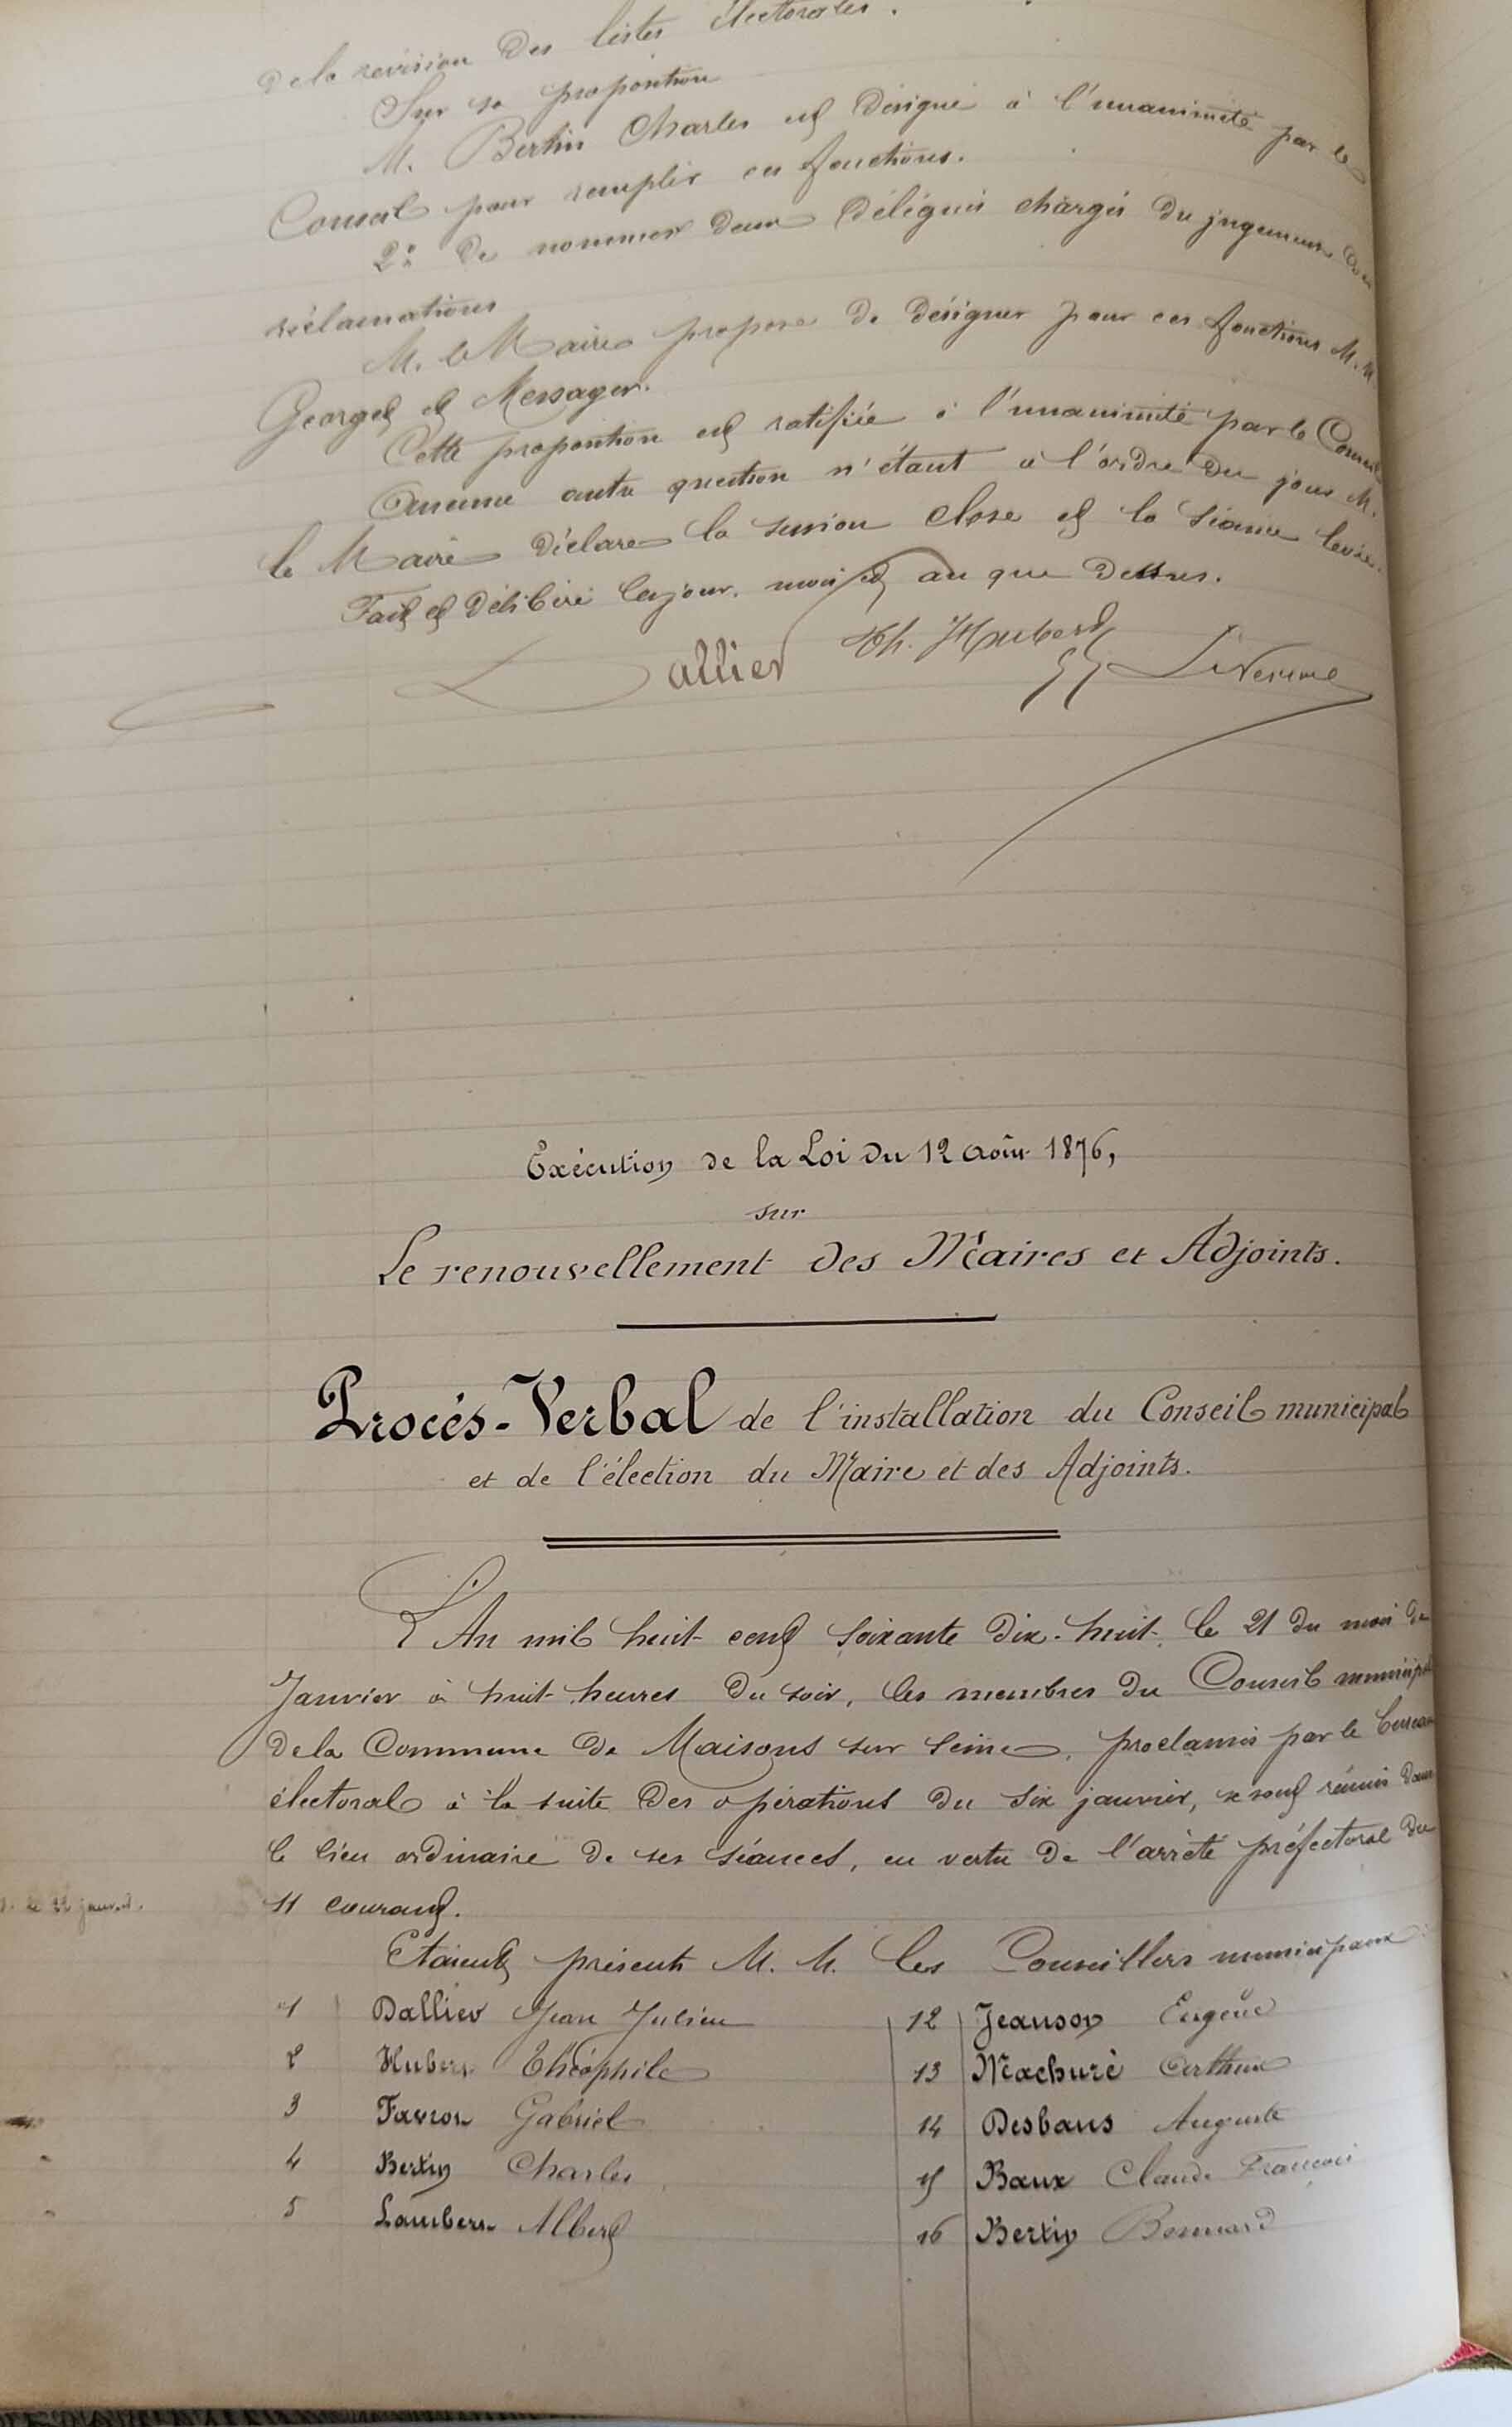 de la révision des listes électorales.
Sur sa proposition
M. Bertin Charles est désigné à l'unanimité par le
Conseil pour remplir ces fonctions.
2° De nommer deux délégués chargés du jugement des
réclamations
M. le Maire propose de désigner pour ces fonctions M. M.
Georget et Messager.
Cette proposition est ratifiée à l'unanimité par le Conseil
Aucune autre question n'étant à l'ordre du jour M.
le Maire déclare la session close et la séance levée.
Fait et délibéré les jour, mois et an que dessus.
Dallier Th. Hubert
Exécution de la Loi du 12 Août 1876,
sur
Le renouvellement des Maires et Adjoints.
Procès-Verbal de l'installation du Conseil municipal
et de l'élection du Maire et des Adjoints.
L'An mil huit cent soixante dix-huit, le 21 du mois de
Janvier à huit heures du soir, les membres du Conseil municipal
de la Commune de Maisons sur Seine, proclamés par le bureau
électoral à la suite des opérations du six janvier, se sont réunis dans
le lieu ordinaire de ses séances, en vertu de l'arrêté préfectoral du
11 courant.
le 22 janvier.
Etaient présents M. M. les Conseillers municipaux :
1 Dallier Jean Julien
2 Hubert Théophile
3 Favron Gabriel
4 Bertin Charles
5 Lambert Albert
12 Jeanson Eugène
13 Machuré Arthur
14 Desbans Auguste
15 Baux Claude François
16 Bertin Bernard